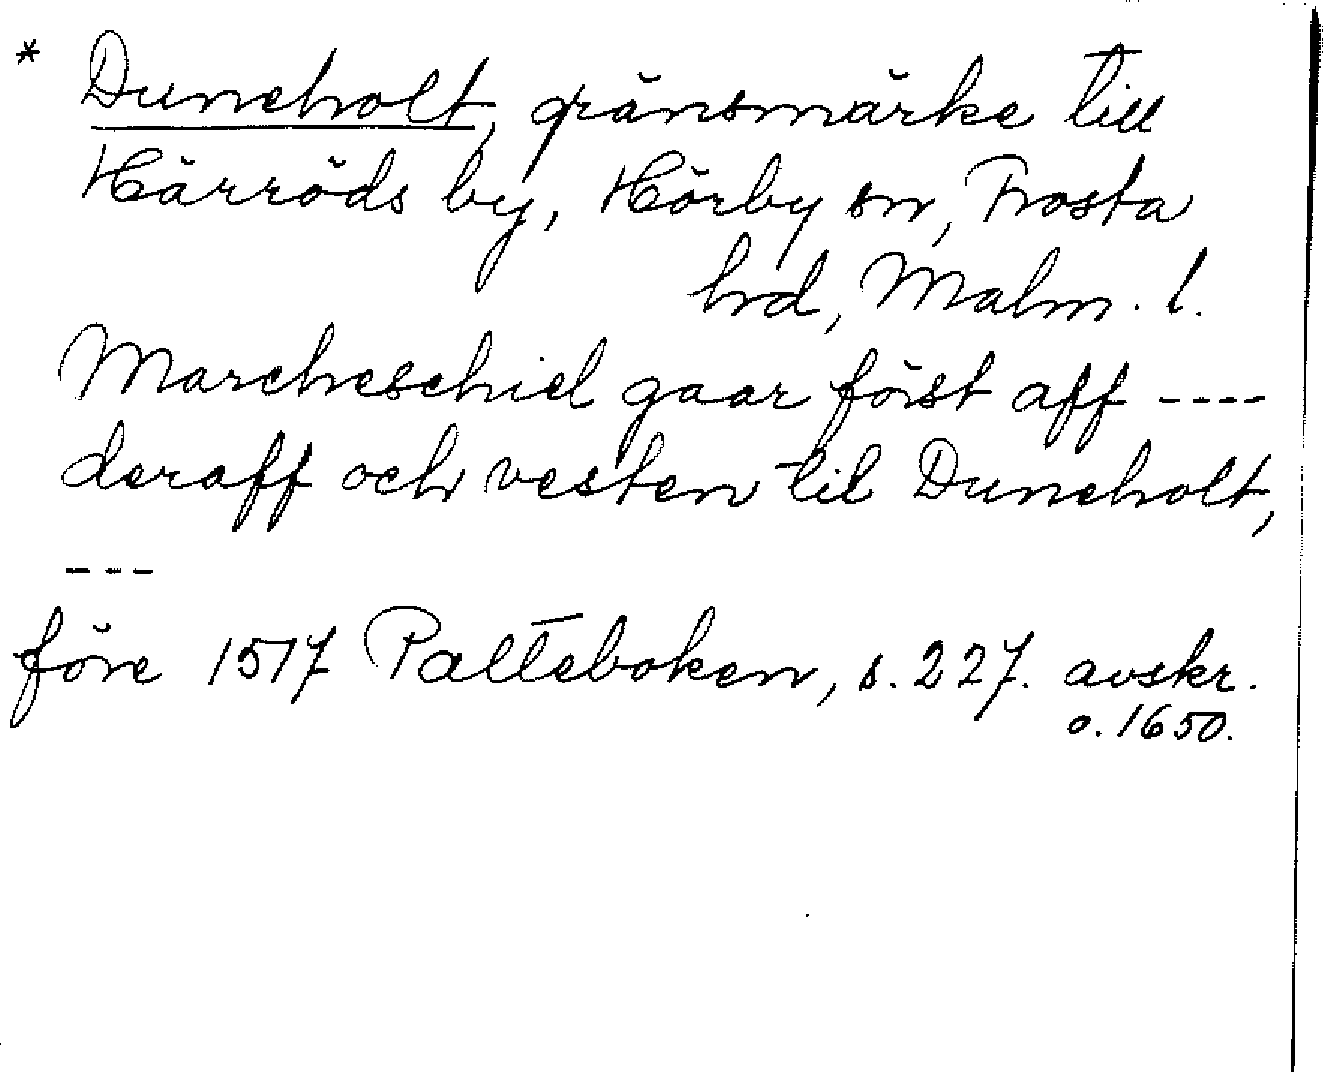 * Duneholt, gränsmärke till
Härröds by, Hörby sn, Frosta
hrd, Malm. l.
Marcheschiel gaar först aff ----
deraff och vesten til Duneholt,
---
före 1517 Palteboken, s. 227. avskr.
o. 1650.